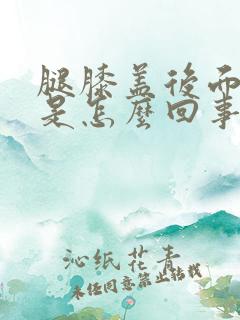 腿膝盖後面
是怎麼回事
沁纸花青
未经同意禁止转载